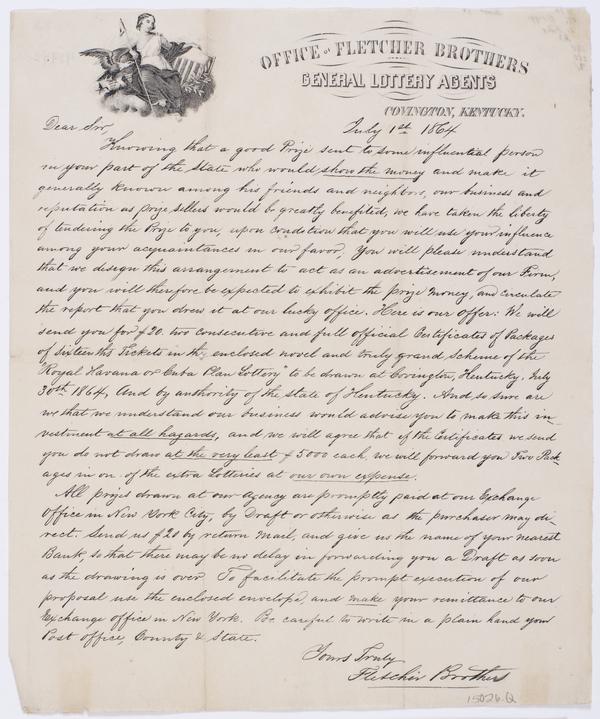 OFFICE OF FLETCHER BROTHERS
GENERAL LOTTERY AGENTS
COVINGTON, KENTUCKY.
July 1st 1864
Dear Sir,
Knowing that a good Prize sent to some influential person
in your part of the State who would show the money and make it
generally known among his friends and neighbors, our business and
reputation as prize sellers would be greatly benefited, we have taken the liberty
of tendering the Prize to you, upon condition that you will use your influence
among your acquaintances in our favor, You will please understand
that we design this arrangement to act as an advertisement of our Firm,
and you will therefore be expected to exhibit the prize money, and circulate
the report that you drew it at our lucky office. Here is our offer: We will
send you for $20. two consecutive and full official Certificates of Packages
of Sixteenths Tickets in the enclosed novel and truly grand scheme of the
"Royal Havana or Cuba Plan Lottery" to be drawn at Covington, Kentucky, July
30th 1864, And by authority of the state of Kentucky. And so sure are
we that we understand our business would advise you to make this in-
vestment at all hazards, and we will agree that if the Certificates we send
you do not draw at the very least $5000 each, we will forward you Two Pack-
ages in on of the extra Lotteries at our own expense.
All prizes drawn at our Agency are promptly paid at our Exchange
Office in New York City, by Draft or otherwise as the purchaser may di-
rect. Send us $20 by return mail, and give us the name of your nearest
Bank, so that there may be no delay in forwarding you a Draft as soon
as the drawing is over. To facilitate the prompt execution of our
proposal use the enclosed envelope, and make your remittance to our
Exchange office in New York. Be careful to write in a plain hand your
Post office, County & State.
Yours Truly
Fletcher Brothers
15026.Q